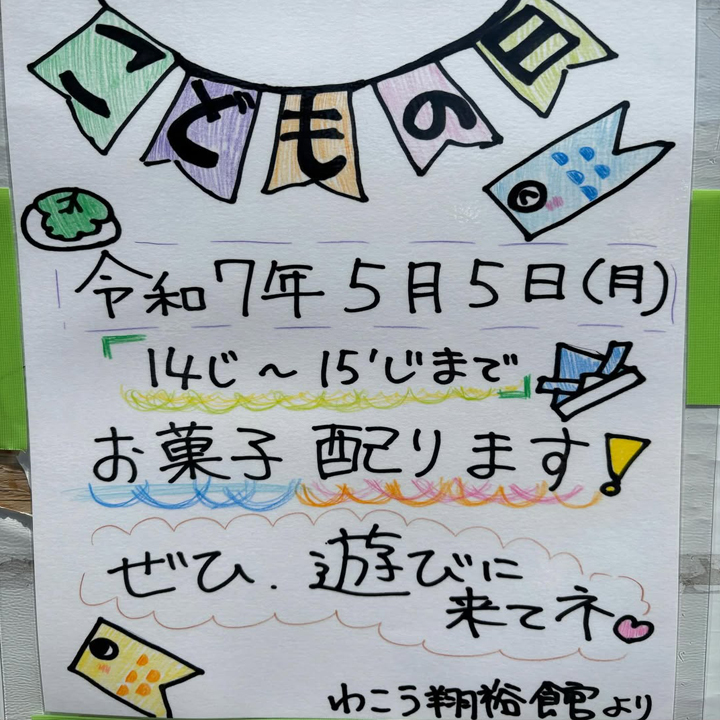 こどもの日
令和7年5月5日(月)
「14じ〜15じまで」
お菓子配ります!
ぜひ.遊びに
来てネ
わこう翔裕館より